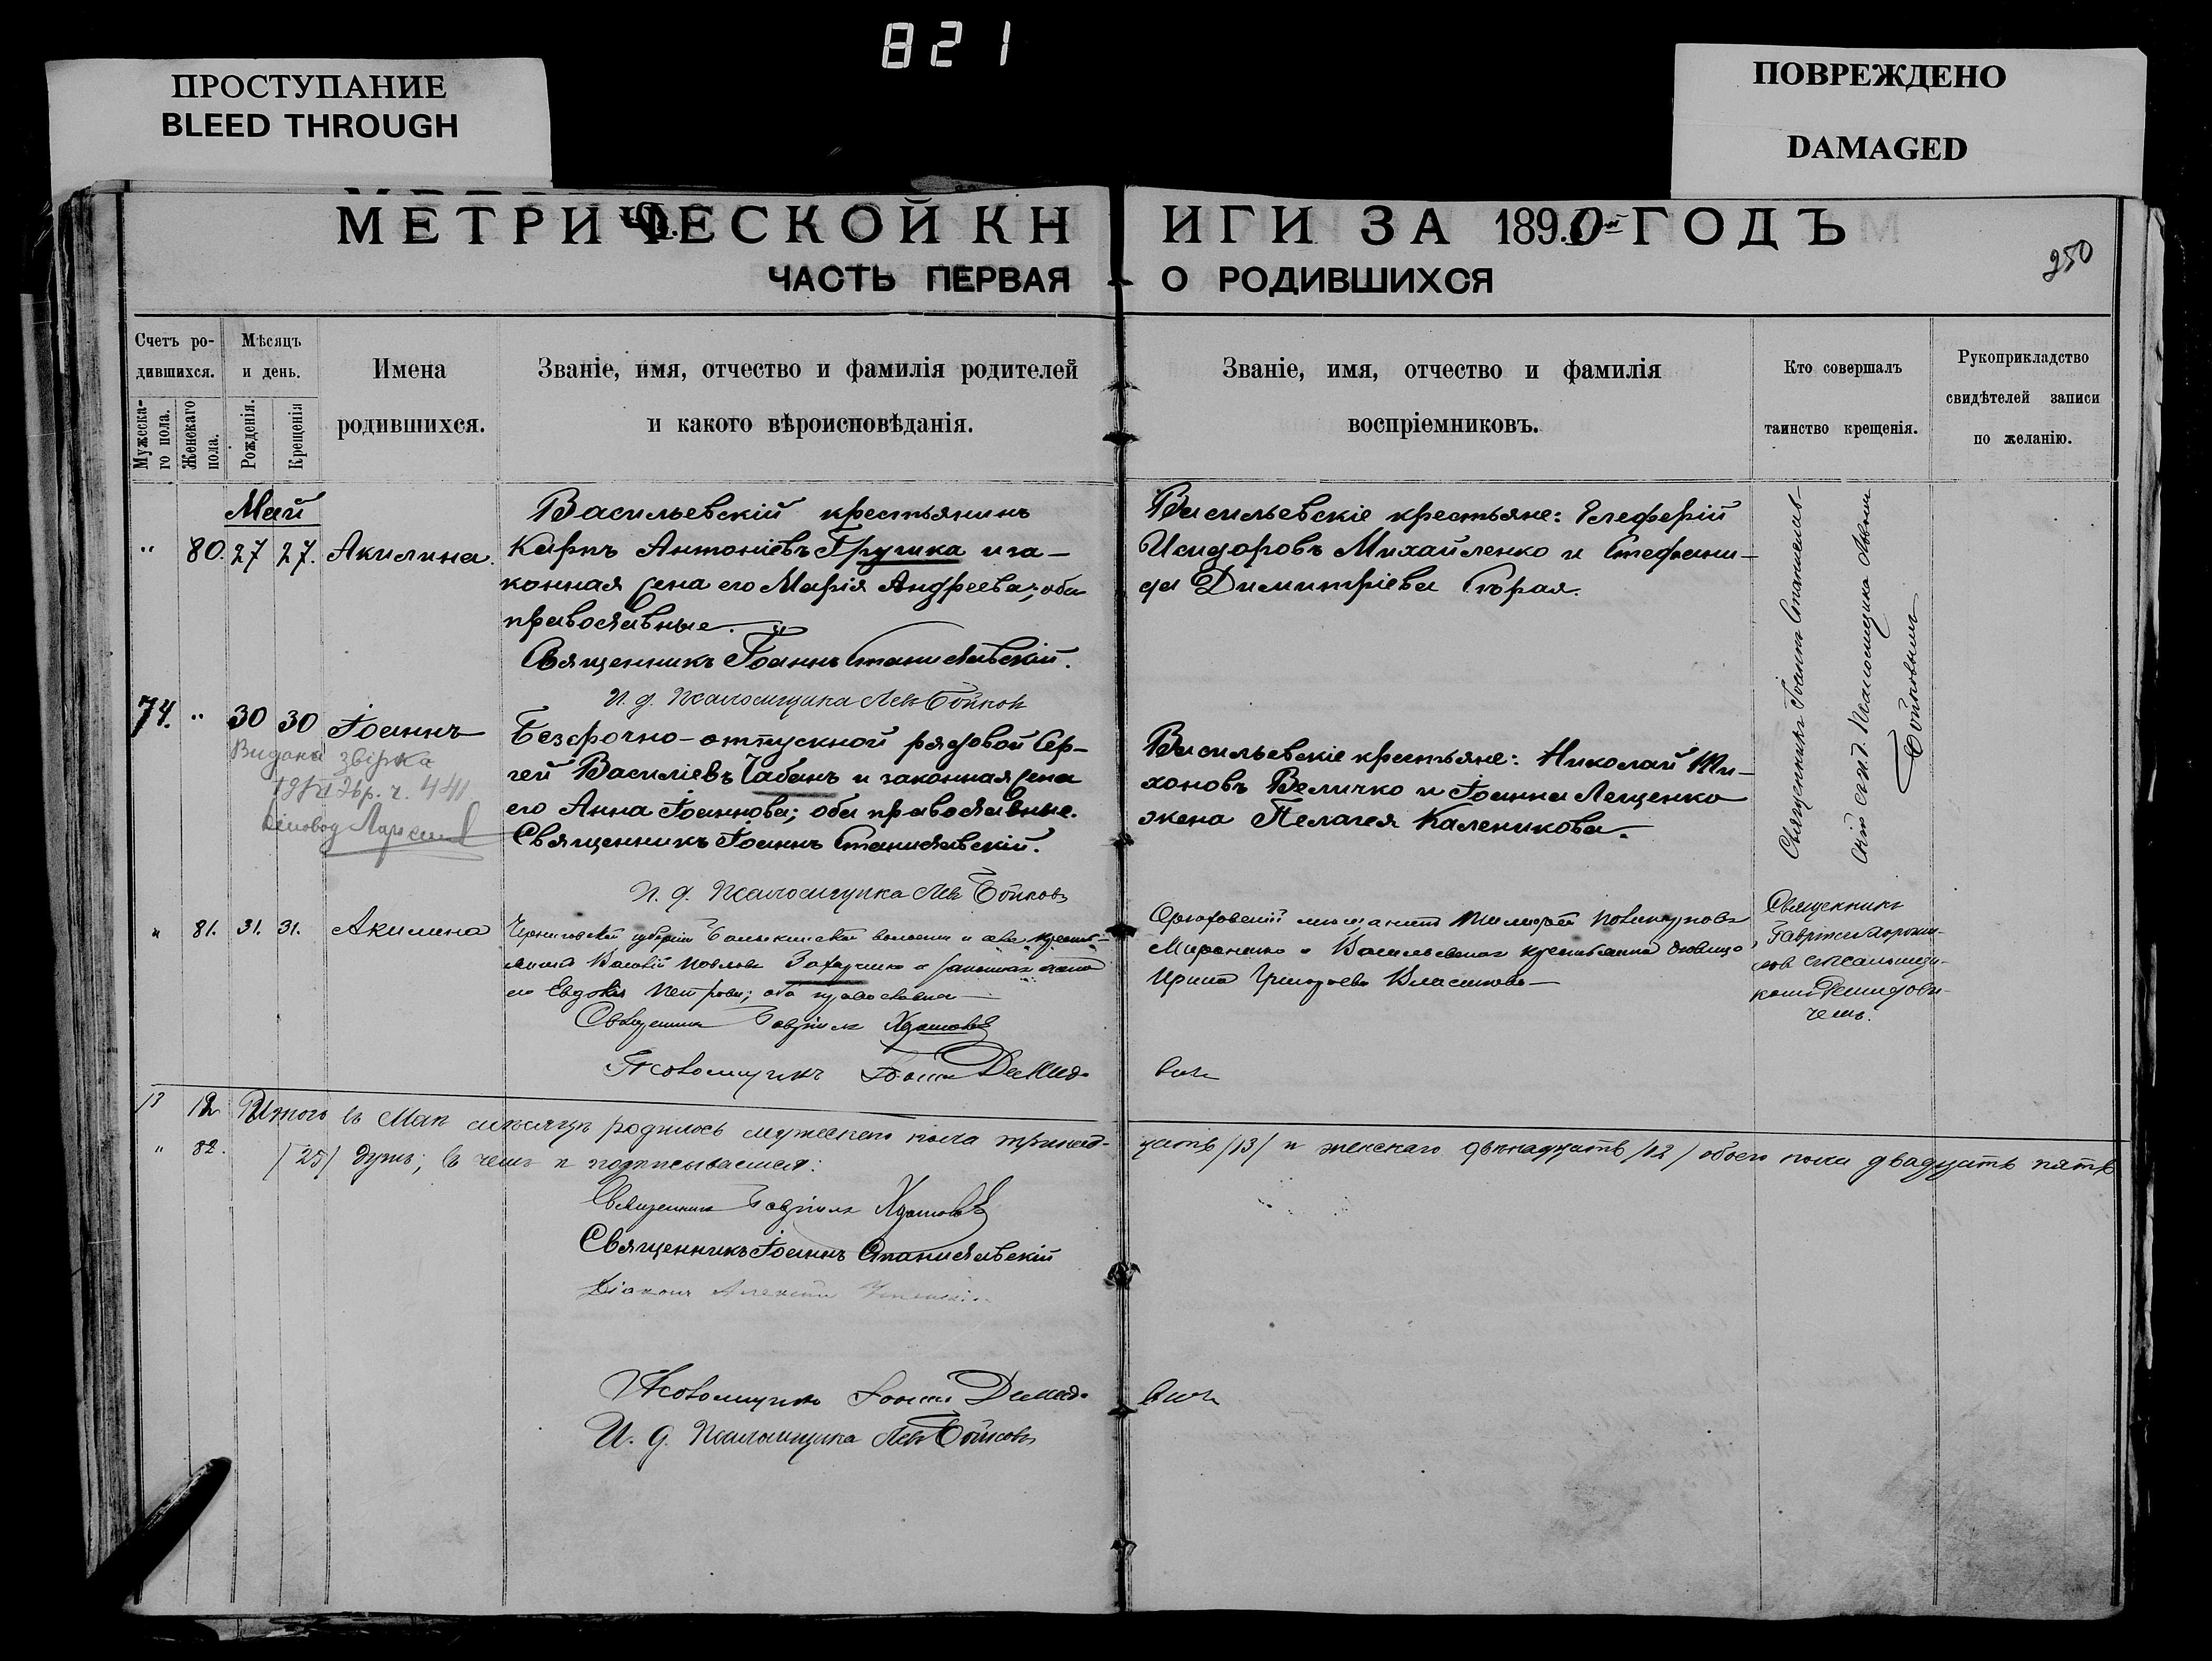 821
ПРОСТУПАНИЕ
BLEED THROUGH
ПОВРЕЖДЕНО
DAMAGED
МЕТРИЧЕСКОЙ КНИГИ ЗА 1890й ГОДЪ
ЧАСТЬ ПЕРВАЯ О РОДИВШИХСЯ
250
Счетъ ро-
дившихся.
Мужеска-
го пола.
Женскаго
пола.
Мѣсяцъ
и день.
Рожденія.
Крещенія
Имена
родившихся.
Званіе, имя, отчество и фамилія родителей
и какого вѣроисповѣданія.
Званіе, имя, отчество и фамилія
воспріемниковъ.
Кто совершалъ
таинство крещенія.
Рукоприкладство
свидѣтелей записи
по желанію.
Май
" 80. 27 27. Акилина.
Васильевскій крестьянинъ
Карпъ Антоніевъ Грушка и за-
конная жена его Марія Андреева; оба
православные.
Священникъ Іоаннъ Станиславскій.
И. д. Псаломщика Левъ Бойковъ
Васильевскіе крестьяне: Елеферій
Исидоровъ Михайленко и Стефани-
да Димитріева Сѣрая.
Священникъ Іоаннъ Станиславскій
съ и. д. Псаломщика Львомъ
Бойковымъ
74. " 30 30 Іоаннъ
Видана звірка
ч. 441
Діловод
Безсрочно-отпускной рядовой Сер-
гей Василіевъ Чабанъ и законная жена
его Анна Іоаннова; оба православные.
Священникъ Іоаннъ Станиславскій.
И. д. Псаломщика Левъ Бойковъ
Васильевскіе крестьяне: Николай Ти-
хоновъ Величко и Іоанна Лещенко
жена Пелагея Каленикова.
" 81. 31. 31. Акилина
Черниговской губерніи волости
Павловъ Захарченко и законная жена
его Евдокія Петрова; оба православные
Священникъ Гавріилъ
Псаломщикъ Іоаннъ Демидовичъ
Орѣховскій мѣщанинъ
Мироненко и Васильевская крестьянка девица
Ирина Григорьева Власенкова
Священникъ
Гавріилъ
съ псаломщи-
комъ Демидови-
чемъ.
13 12 Итого въ Маѣ мѣсяцѣ родилось мужескаго пола тринад-
цать /13/ и женскаго двѣнадцать /12/ обоего пола двадцать пять
" 82. /25/ душъ; въ чемъ и подписываемся:
Священникъ Гавріилъ
Священникъ Іоаннъ Станиславскій
Діаконъ Алексій
Псаломщикъ Іоаннъ Демидовичъ
И. д. Псаломщика Левъ Бойковъ